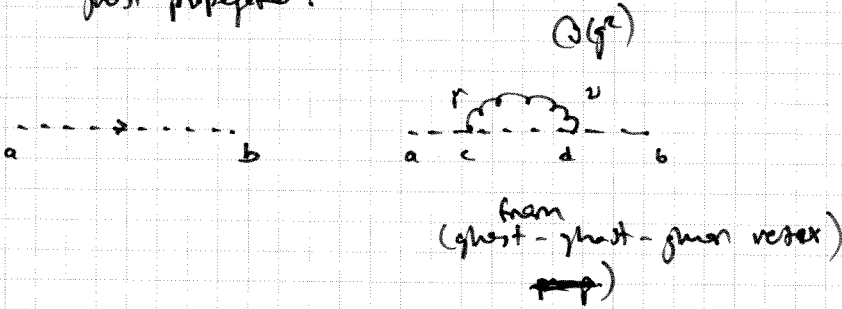 ghost propagator :
O(g²)
μ ν
a b a c d b
from
(ghost - ghost - gluon vertex)